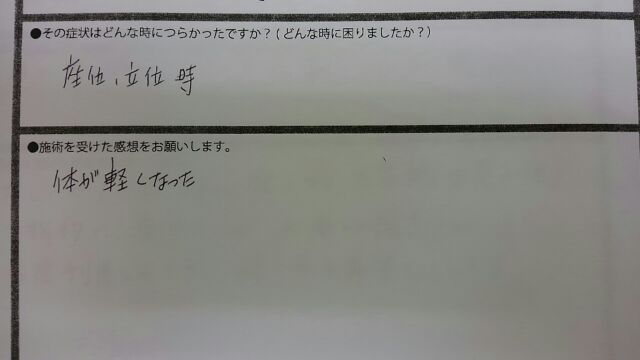 ●その症状はどんな時につらかったですか？(どんな時に困りましたか？)
座位、立位時
●施術を受けた感想をお願いします。
体が軽くなった